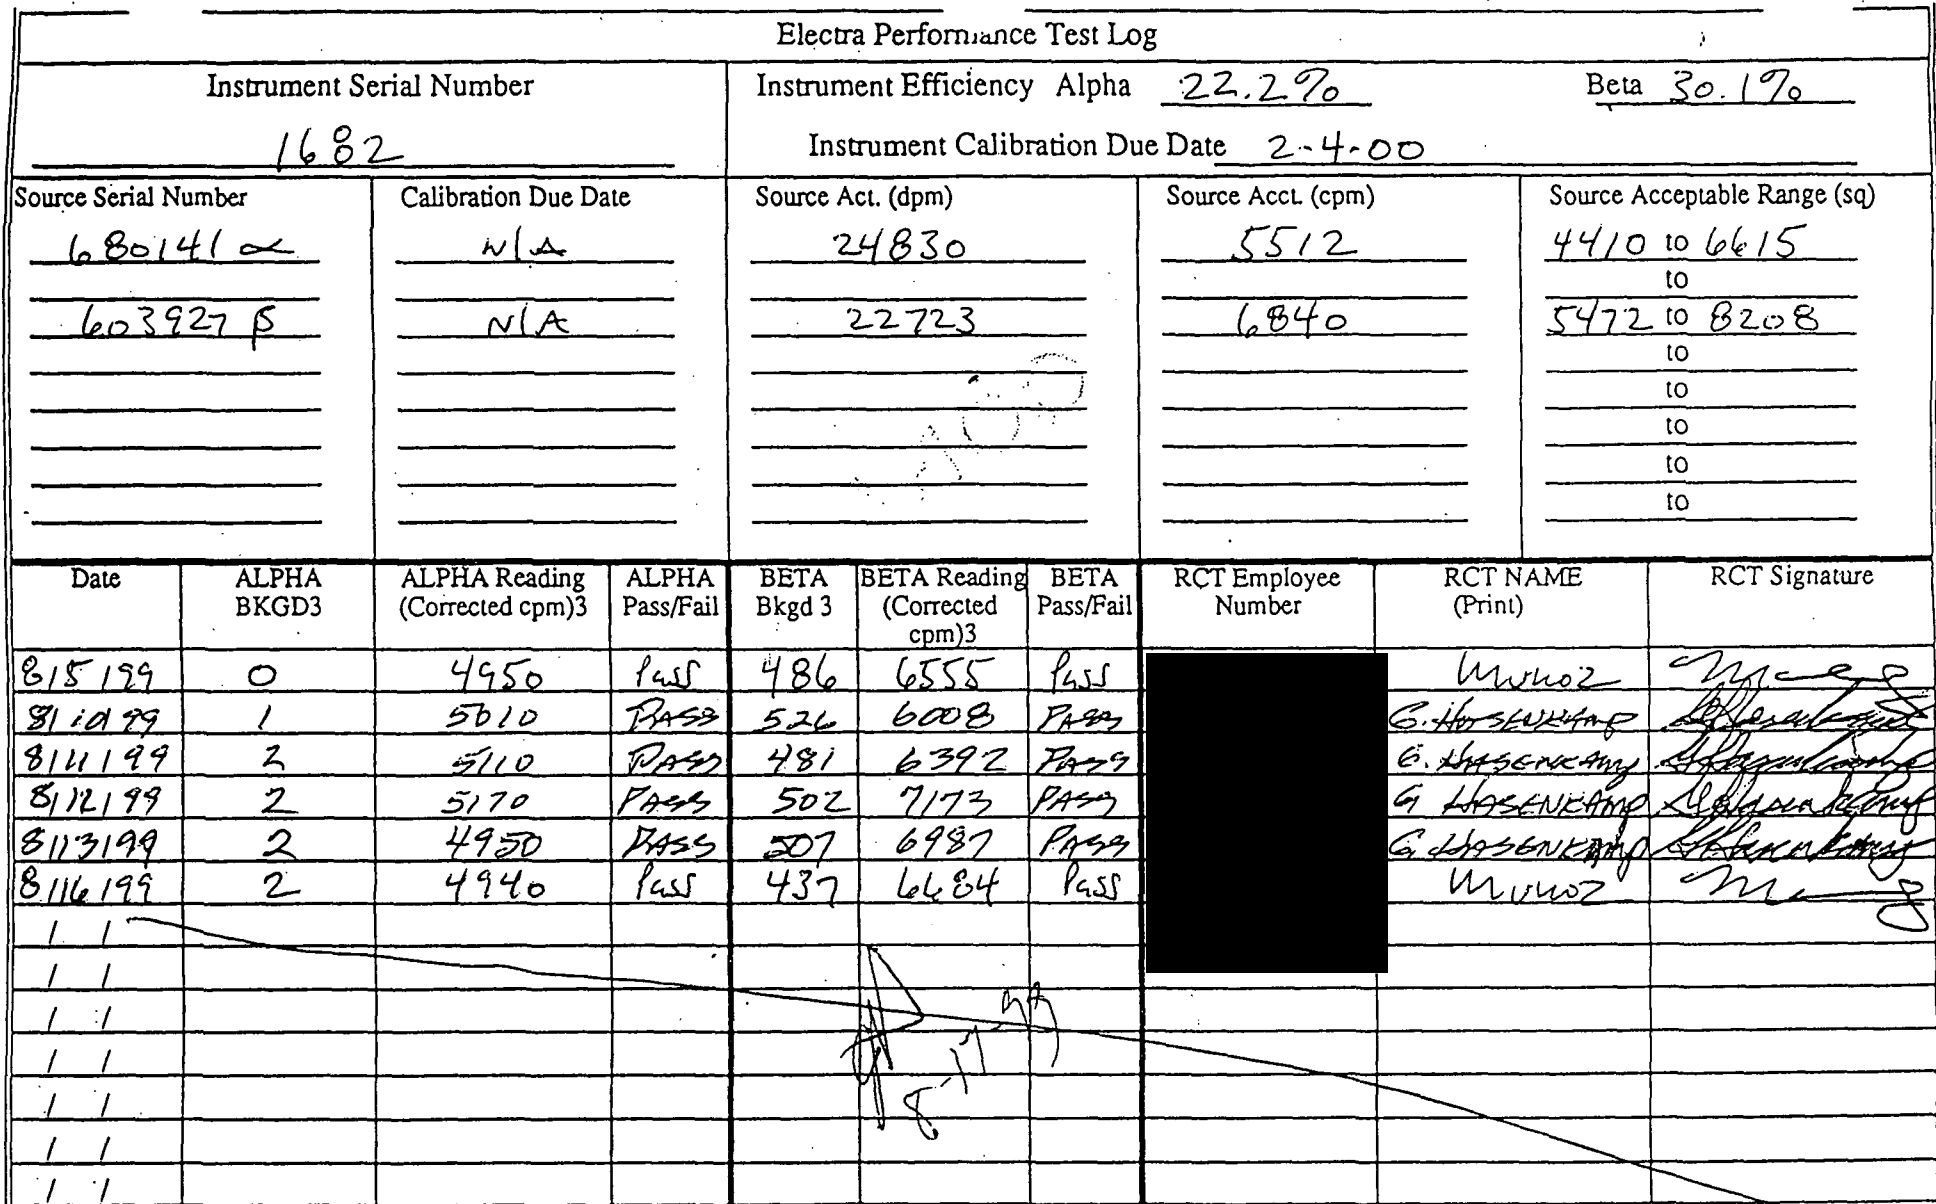 Electra Performance Test Log
Instrument Serial Number
1682
Instrument Efficiency Alpha 22.2% Beta 30.1%
Instrument Calibration Due Date 2-4-00
Source Serial Number Calibration Due Date Source Act. (dpm) Source Acct. (cpm) Source Acceptable Range (sq)
680141 α N/A 24830 5512 4410 to 6615
to
603927 β N/A 22723 6840 5472 to 8208
to
to
to
to
to
Date ALPHA BKGD3 ALPHA Reading (Corrected cpm)3 ALPHA Pass/Fail BETA Bkgd 3 BETA Reading (Corrected cpm)3 BETA Pass/Fail RCT Employee Number RCT NAME (Print) RCT Signature
8/5/99 0 4950 Pass 486 6555 Pass Munoz
8/10/99 1 5010 PASS 526 6008 PASS G. HASENKAMP
8/11/99 2 5110 PASS 481 6392 PASS G. HASENKAMP
8/12/99 2 5170 PASS 502 7173 PASS G HASENKAMP
8/13/99 2 4950 PASS 507 6987 PASS G. HASENKAMP
8/16/99 2 4940 Pass 437 6684 Pass Munoz
/ /
/ /
/ /
/ /
/ /
/ /
/ /
8-17-99